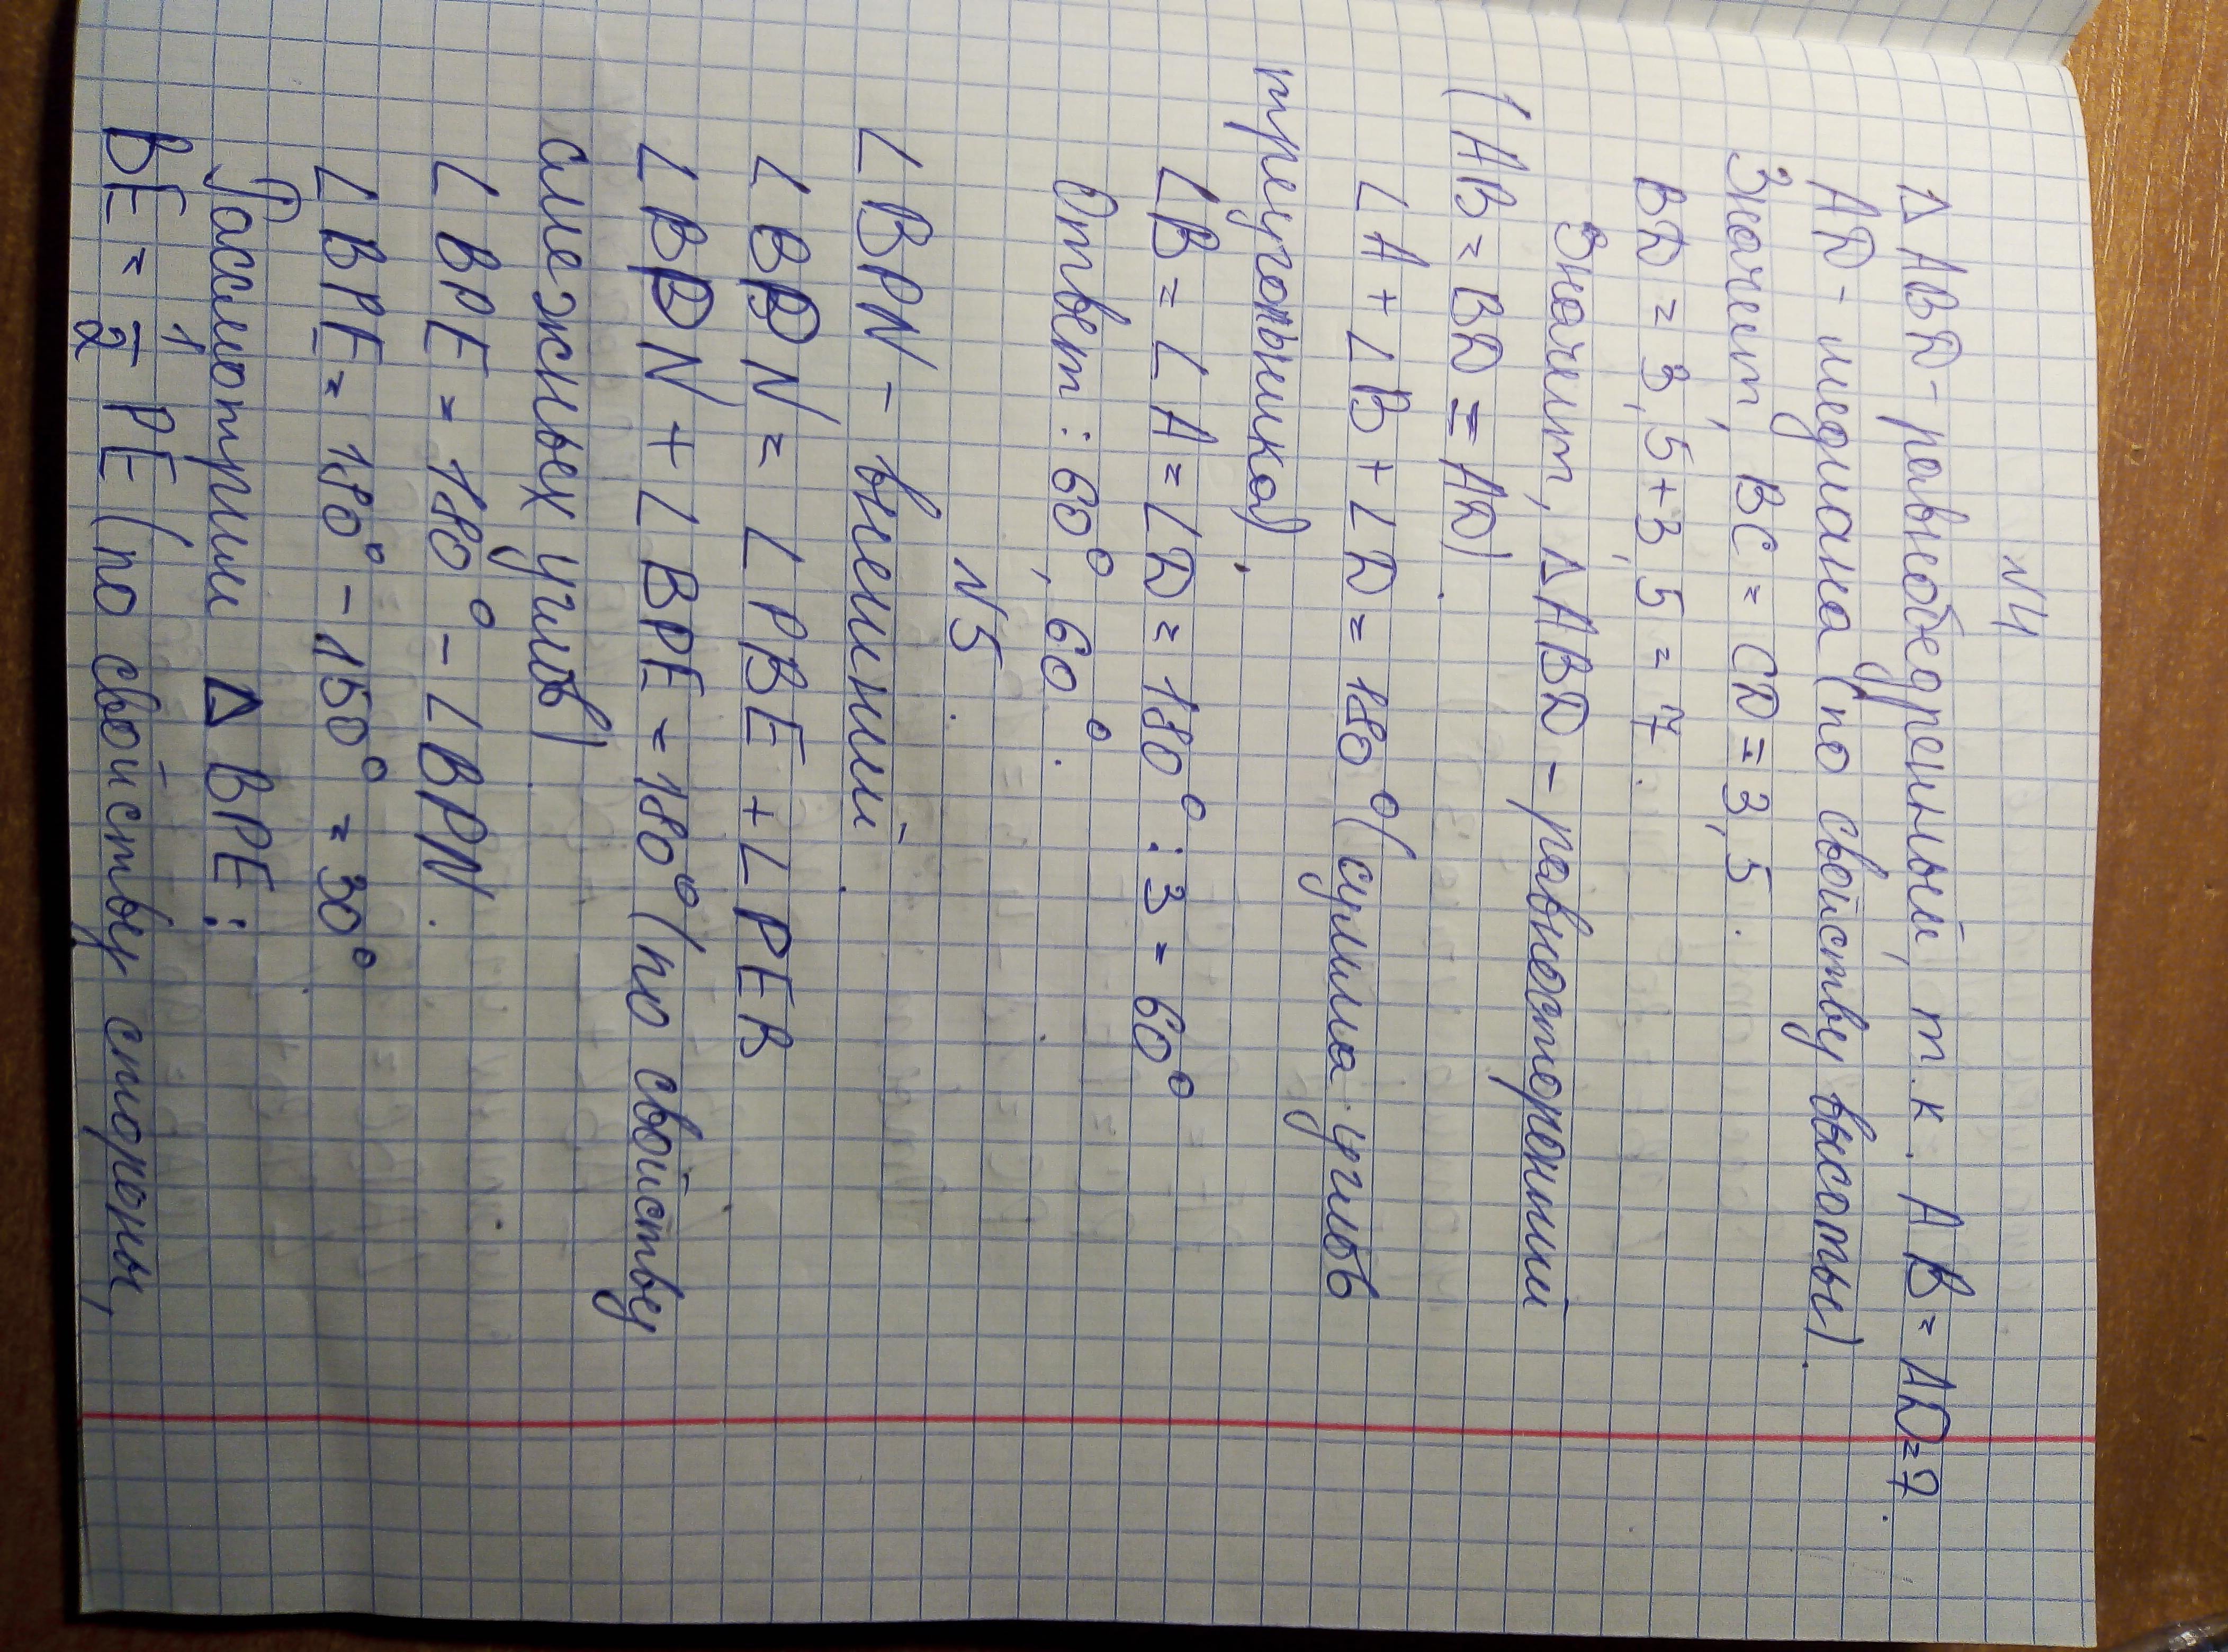 N4
Δ ABD - равнобедренный, т.к. AB = AD = 7.
AD - медиана (по свойству высоты).
Значит, BC = CD = 3,5.
BD = 3,5 + 3,5 = 7.
Значит, Δ ABD - равносторонний
(AB = BD = AD).
∠A + ∠B + ∠D = 180° (сумма углов
треугольника),
∠B = ∠A = ∠D = 180° : 3 = 60°
Ответ: 60°, 60°.
N5.
∠BPN - внешний.
∠BPN = ∠PBE + ∠PEB
∠BPN + ∠BPE = 180° (по свойству
смежных углов)
∠BPE = 180° - ∠BPN.
∠BPE = 180° - 150° = 30°
Рассмотрим Δ BPE:
BE = 1/2 PE (по свойству стороны,